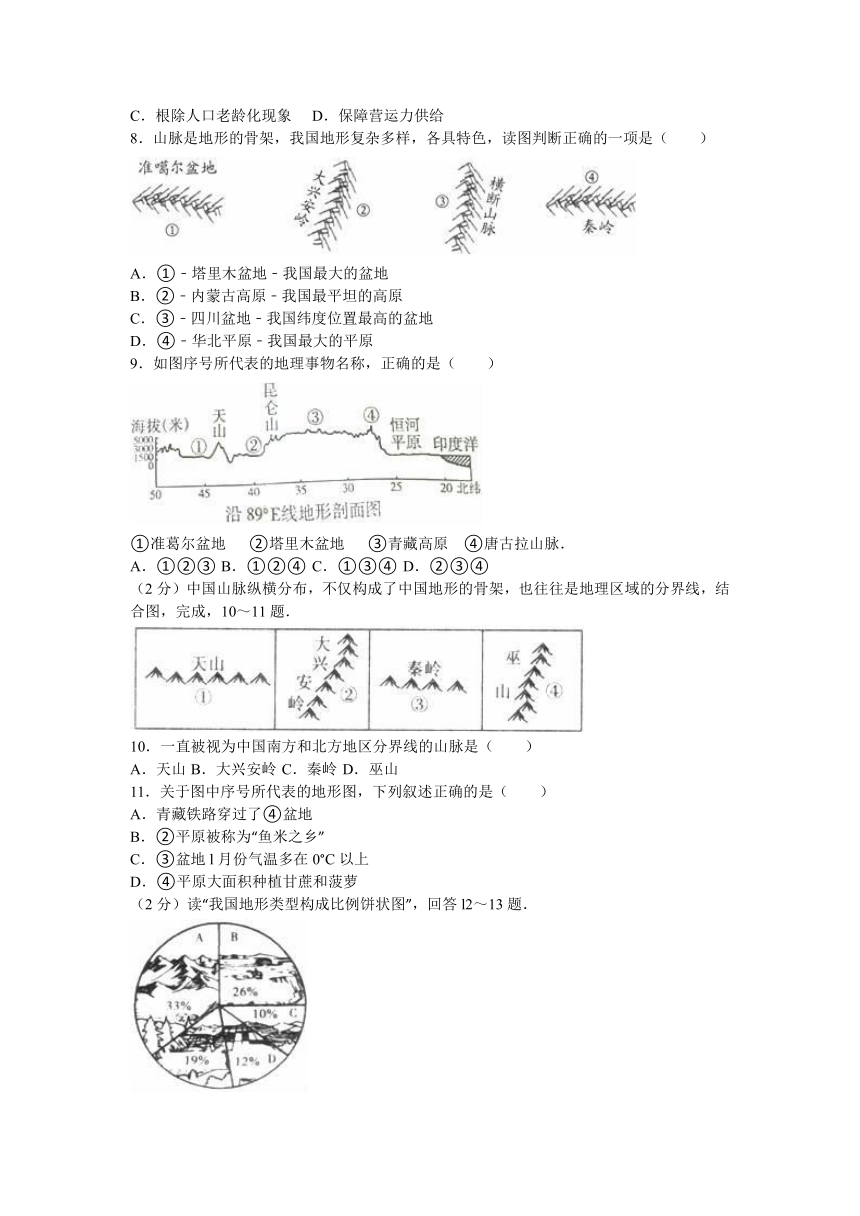 C．根除人口老龄化现象　D．保障营运力供给
8．山脉是地形的骨架，我国地形复杂多样，各具特色，读图判断正确的一项是（　　）
准噶尔盆地
①
大兴安岭
②
③
横断山脉
④
秦岭
A．①﹣塔里木盆地﹣我国最大的盆地
B．②﹣内蒙古高原﹣我国最平坦的高原
C．③﹣四川盆地﹣我国纬度位置最高的盆地
D．④﹣华北平原﹣我国最大的平原
9．如图序号所代表的地理事物名称，正确的是（　　）
海拔(米)
5000
3000
1500
0
①
天山
②
昆仑山
③
④
恒河平原
印度洋
50 45 40 35 30 25 20 北纬
沿 89°E线地形剖面图
①准葛尔盆地　②塔里木盆地　③青藏高原　④唐古拉山脉．
A．①②③ B．①②④ C．①③④ D．②③④
（2 分）中国山脉纵横分布，不仅构成了中国地形的骨架，也往往是地理区域的分界线，结
合图，完成，10～11 题．
天山
①
大兴安岭
②
秦岭
③
巫山
④
10．一直被视为中国南方和北方地区分界线的山脉是（　　）
A．天山 B．大兴安岭 C．秦岭 D．巫山
11．关于图中序号所代表的地形图，下列叙述正确的是（　　）
A．青藏铁路穿过了④盆地
B．②平原被称为“鱼米之乡”
C．③盆地 l 月份气温多在 0°C 以上
D．④平原大面积种植甘蔗和菠萝
（2 分）读“我国地形类型构成比例饼状图”，回答 l2～13 题．
A
B
33%
26%
10% C
19%
12% D